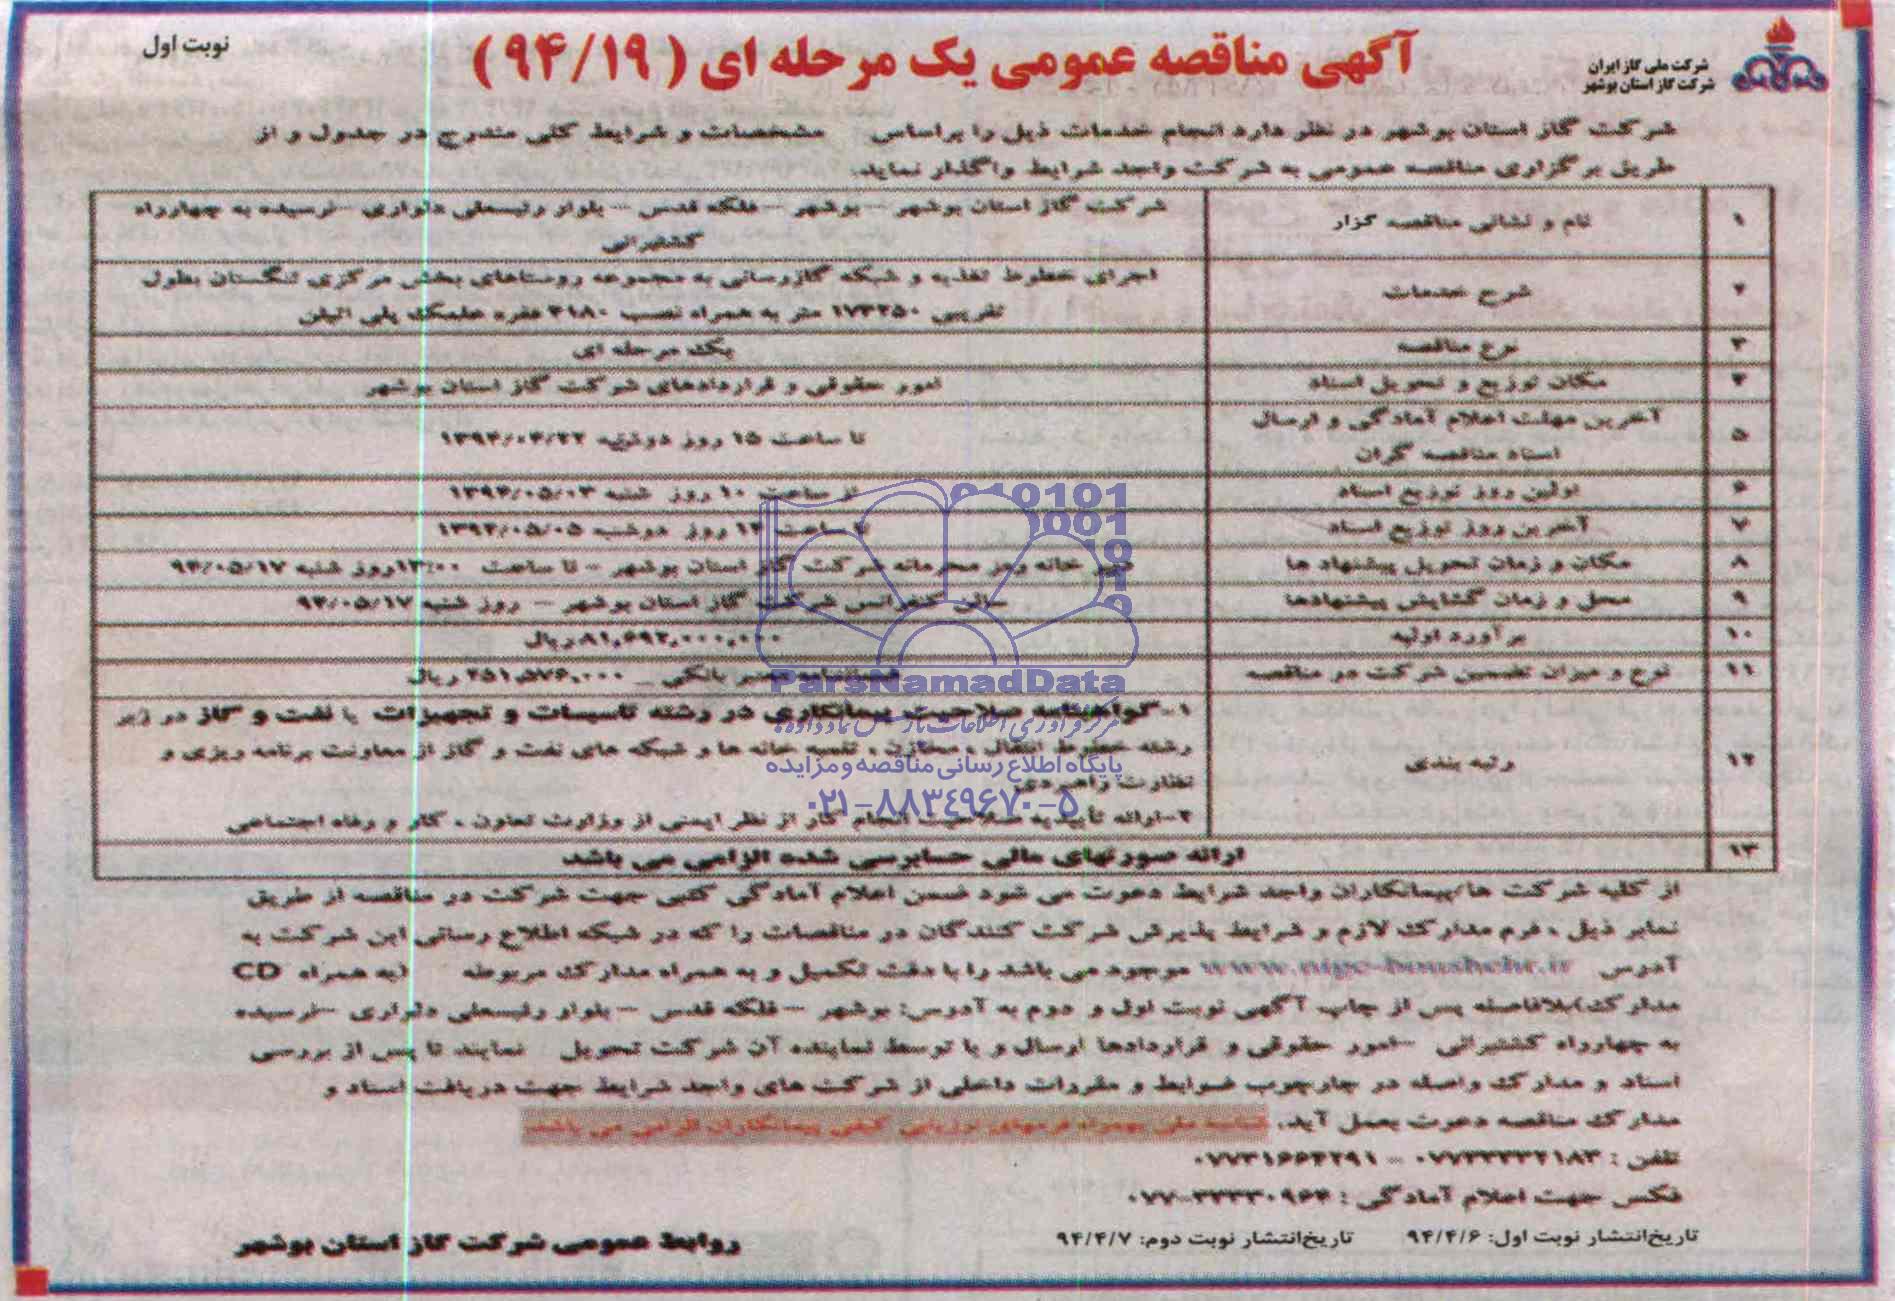 شرکت ملی گاز ایران
شرکت گاز استان بوشهر
آگهی مناقصه عمومی یک مرحله ای ( ۹۴/۱۹ )
نوبت اول
شرکت گاز استان بوشهر در نظر دارد انجام خدمات ذیل را براساس مشخصات و شرایط کلی مندرج در جدول و از
طریق برگزاری مناقصه عمومی به شرکت واجد شرایط واگذار نماید.
۱ نام و نشانی مناقصه گزار شرکت گاز استان بوشهر – بوشهر – فلکه قدس – بلوار رئیسعلی دلواری – نرسیده به چهارراه
کشتیرانی
۲ شرح خدمات اجرای خطوط تغذیه و شبکه گازرسانی به مجموعه روستاهای بخش مرکزی تنگستان بطول
تقریبی متر به همراه نصب علمک پلی اتیلن
۳ نوع مناقصه یک مرحله ای
۴ مکان توزیع و تحویل اسناد امور حقوقی و قراردادهای شرکت گاز استان بوشهر
۵ آخرین مهلت اعلام آمادگی و ارسال
اسناد مناقصه گران تا ساعت ۱۵ روز دوشنبه ۱۳۹۴/۰۴/۲۲
۶ اولین روز توزیع اسناد از ساعت ۱۰ روز شنبه ۱۳۹۴/۰۵/۰۳
۷ آخرین روز توزیع اسناد تا ساعت ۱۴ روز دوشنبه ۱۳۹۴/۰۵/۰۵
۸ مکان و زمان تحویل پیشنهاد ها دبیرخانه محرمانه شرکت گاز استان بوشهر – تا ساعت ۱۳:۰۰ روز شنبه ۹۴/۰۵/۱۷
۹ محل و زمان گشایش پیشنهادها سالن کنفرانس شرکت گاز استان بوشهر – روز شنبه ۹۴/۰۵/۱۷
۱۰ برآورد اولیه ریال
۱۱ نوع و میزان تضمین شرکت در مناقصه بانکی ریال
۱۲ رتبه بندی ۱-گواهینامه صلاحیت پیمانکاری در رشته تاسیسات و تجهیزات یا نفت و گاز در زیر
رشته خطوط انتقال ، مخازن ، تلمبه خانه ها و شبکه های نفت و گاز از معاونت برنامه ریزی و
نظارت راهبردی
۲-ارائه تأییدیه صلاحیت انجام کار از نظر ایمنی از وزارت تعاون ، کار و رفاه اجتماعی
۱۳ ارائه صورتهای مالی حسابرسی شده الزامی می باشد
ParsNamadData
مرکز فرآوری اطلاعات پارس نماد داده ها
پایگاه اطلاع رسانی مناقصه و مزایده
۰۲۱-۸۸۳۴۹۶۷۰-۵
از کلیه شرکت ها/پیمانکاران واجد شرایط دعوت می شود ضمن اعلام آمادگی کتبی جهت شرکت در مناقصه از طریق
نمابر ذیل ، فرم مدارک لازم و شرایط پذیرش شرکت کنندگان در مناقصات را که در شبکه اطلاع رسانی این شرکت به
آدرس www.nigc-boushehr.ir موجود می باشد را با دقت تکمیل و به همراه مدارک مربوطه (به همراه CD
مدارک)بلافاصله پس از چاپ آگهی نوبت اول و دوم به آدرس: بوشهر – فلکه قدس – بلوار رئیسعلی دلواری – نرسیده
به چهارراه کشتیرانی – امور حقوقی و قراردادها ارسال و یا توسط نماینده آن شرکت تحویل نمایند تا پس از بررسی
اسناد و مدارک واصله در چارچوب ضوابط و مقررات داخلی از شرکت های واجد شرایط جهت دریافت اسناد و
مدارک مناقصه دعوت بعمل آید. شناسه ملی بهمراه فرمهای ارزیابی کیفی پیمانکاران الزامی می باشد.
تلفن :
فکس جهت اعلام آمادگی :
تاریخ انتشار نوبت اول: ۹۴/۴/۶ تاریخ انتشار نوبت دوم: ۹۴/۴/۷
روابط عمومی شرکت گاز استان بوشهر